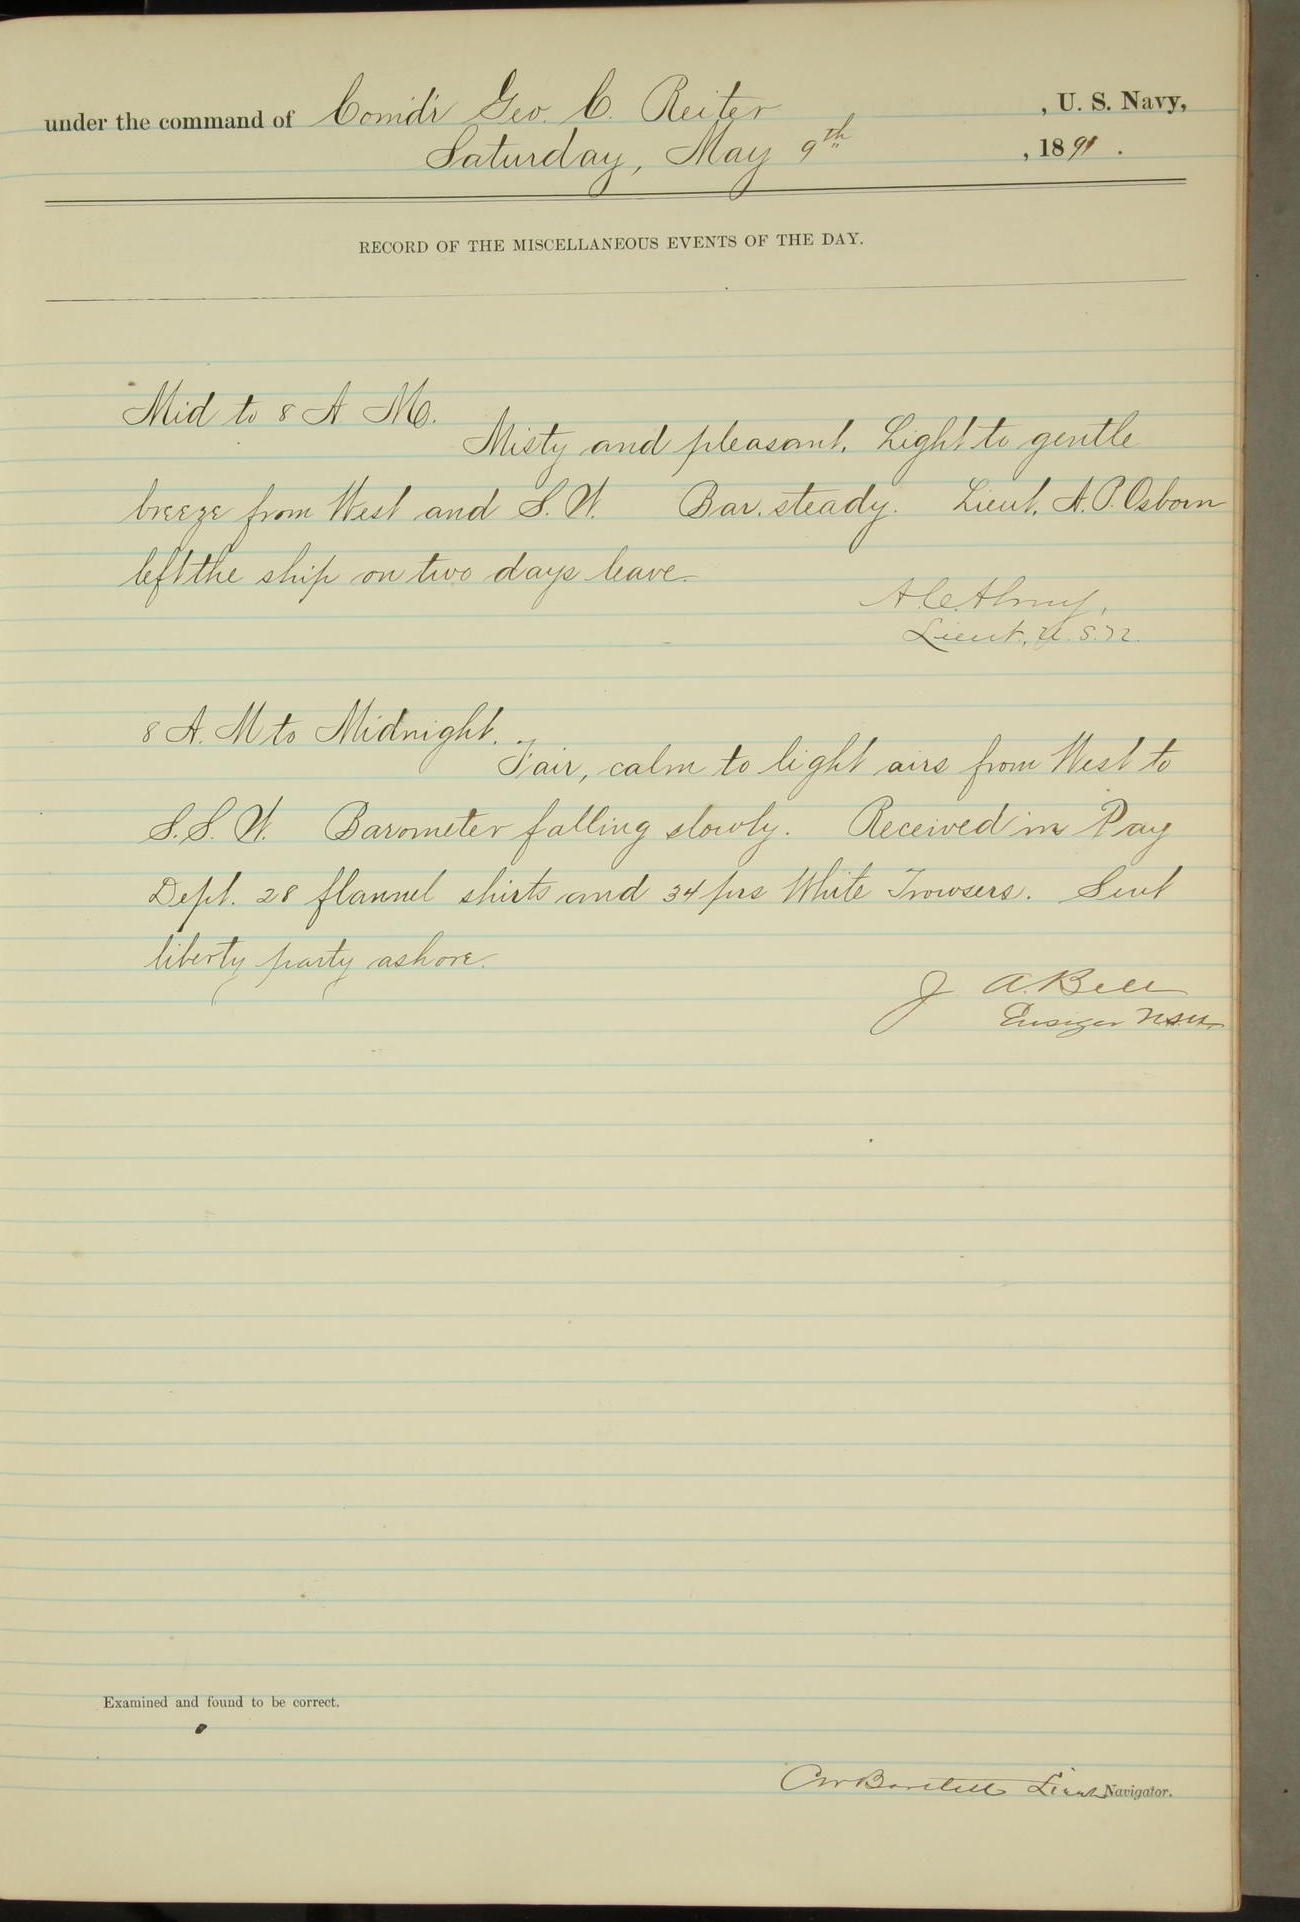 under the command of Comd'r Geo. C. Reiter, U. S. Navy,
Saturday, May 9th, 1891.
RECORD OF THE MISCELLANEOUS EVENTS OF THE DAY.
Mid to 8 A. M.
Misty and pleasant. Light to gentle
breeze from West and S. W. Bar. steady. Lieut. A. P. Osborn
left the ship on two days leave.
A. C. Almy,
Lieut., U. S. N.
8 A. M to Midnight.
Fair, calm to light airs from West to
S. S. W. Barometer falling slowly. Received in Pay
Dept. 28 flannel shirts and 34 prs White Trowsers. Sent
liberty party ashore.
J A. Bell
Ensign USN
Examined and found to be correct.
C W Bartlett Lieut Navigator.